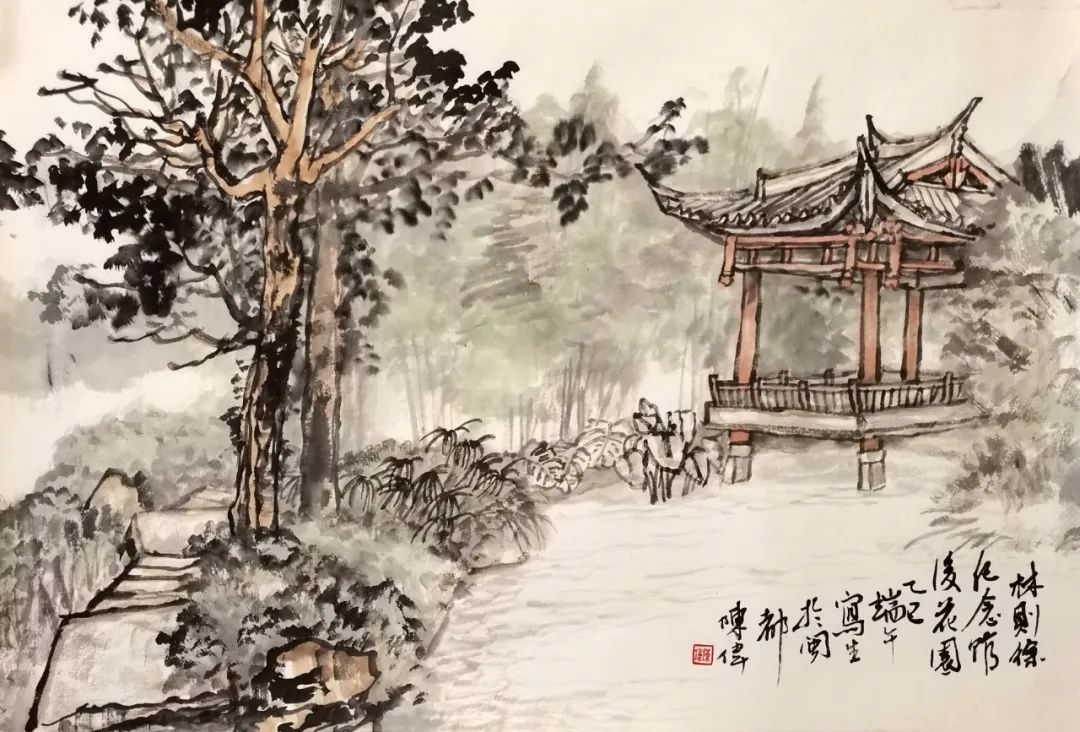 林則徐
纪念館
後花園
乙巳
端午
寫生
於閩
都
陳偉